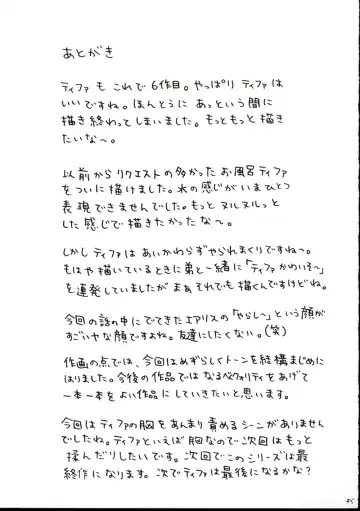 あとがき
ティファも これで 6作目。やっぱり ティファは
いいですね。ほんとうに あっという間に
描き終わってしまいました。もっともっと描き
たいな～。
以前からリクエストの多かった お風呂ティファ
をついに描けました。水の感じがいまひとつ
表現できませんでした。もっとヌルヌルっと
した感じで描きたかったな～。
しかし ティファは あいかわらずやられまくりですね～。
もはや描いているときに弟と一緒に「ティファかわいそ～」
を連発していましたが まぁそれでも描くんですけどね。
今回の話の中にでてきたエアリスの「やらし～」という顔が
すごいヤな顔ですよね。友達にしたくない。(笑)
作画の点では、今回はめずらしくトーンを結構まじめに
はりました。今後の作品では なるべくクォリティをあげて
一本一本をよい作品に していきたいと思います。
今回は ティファの胸を あんまり責めるシーンがありません
でしたね。ティファといえば 胸なので次回は もっと
揉んだりしたいです。次回でこのシリーズは最
終作になります。次でティファは最後になるかな?
45